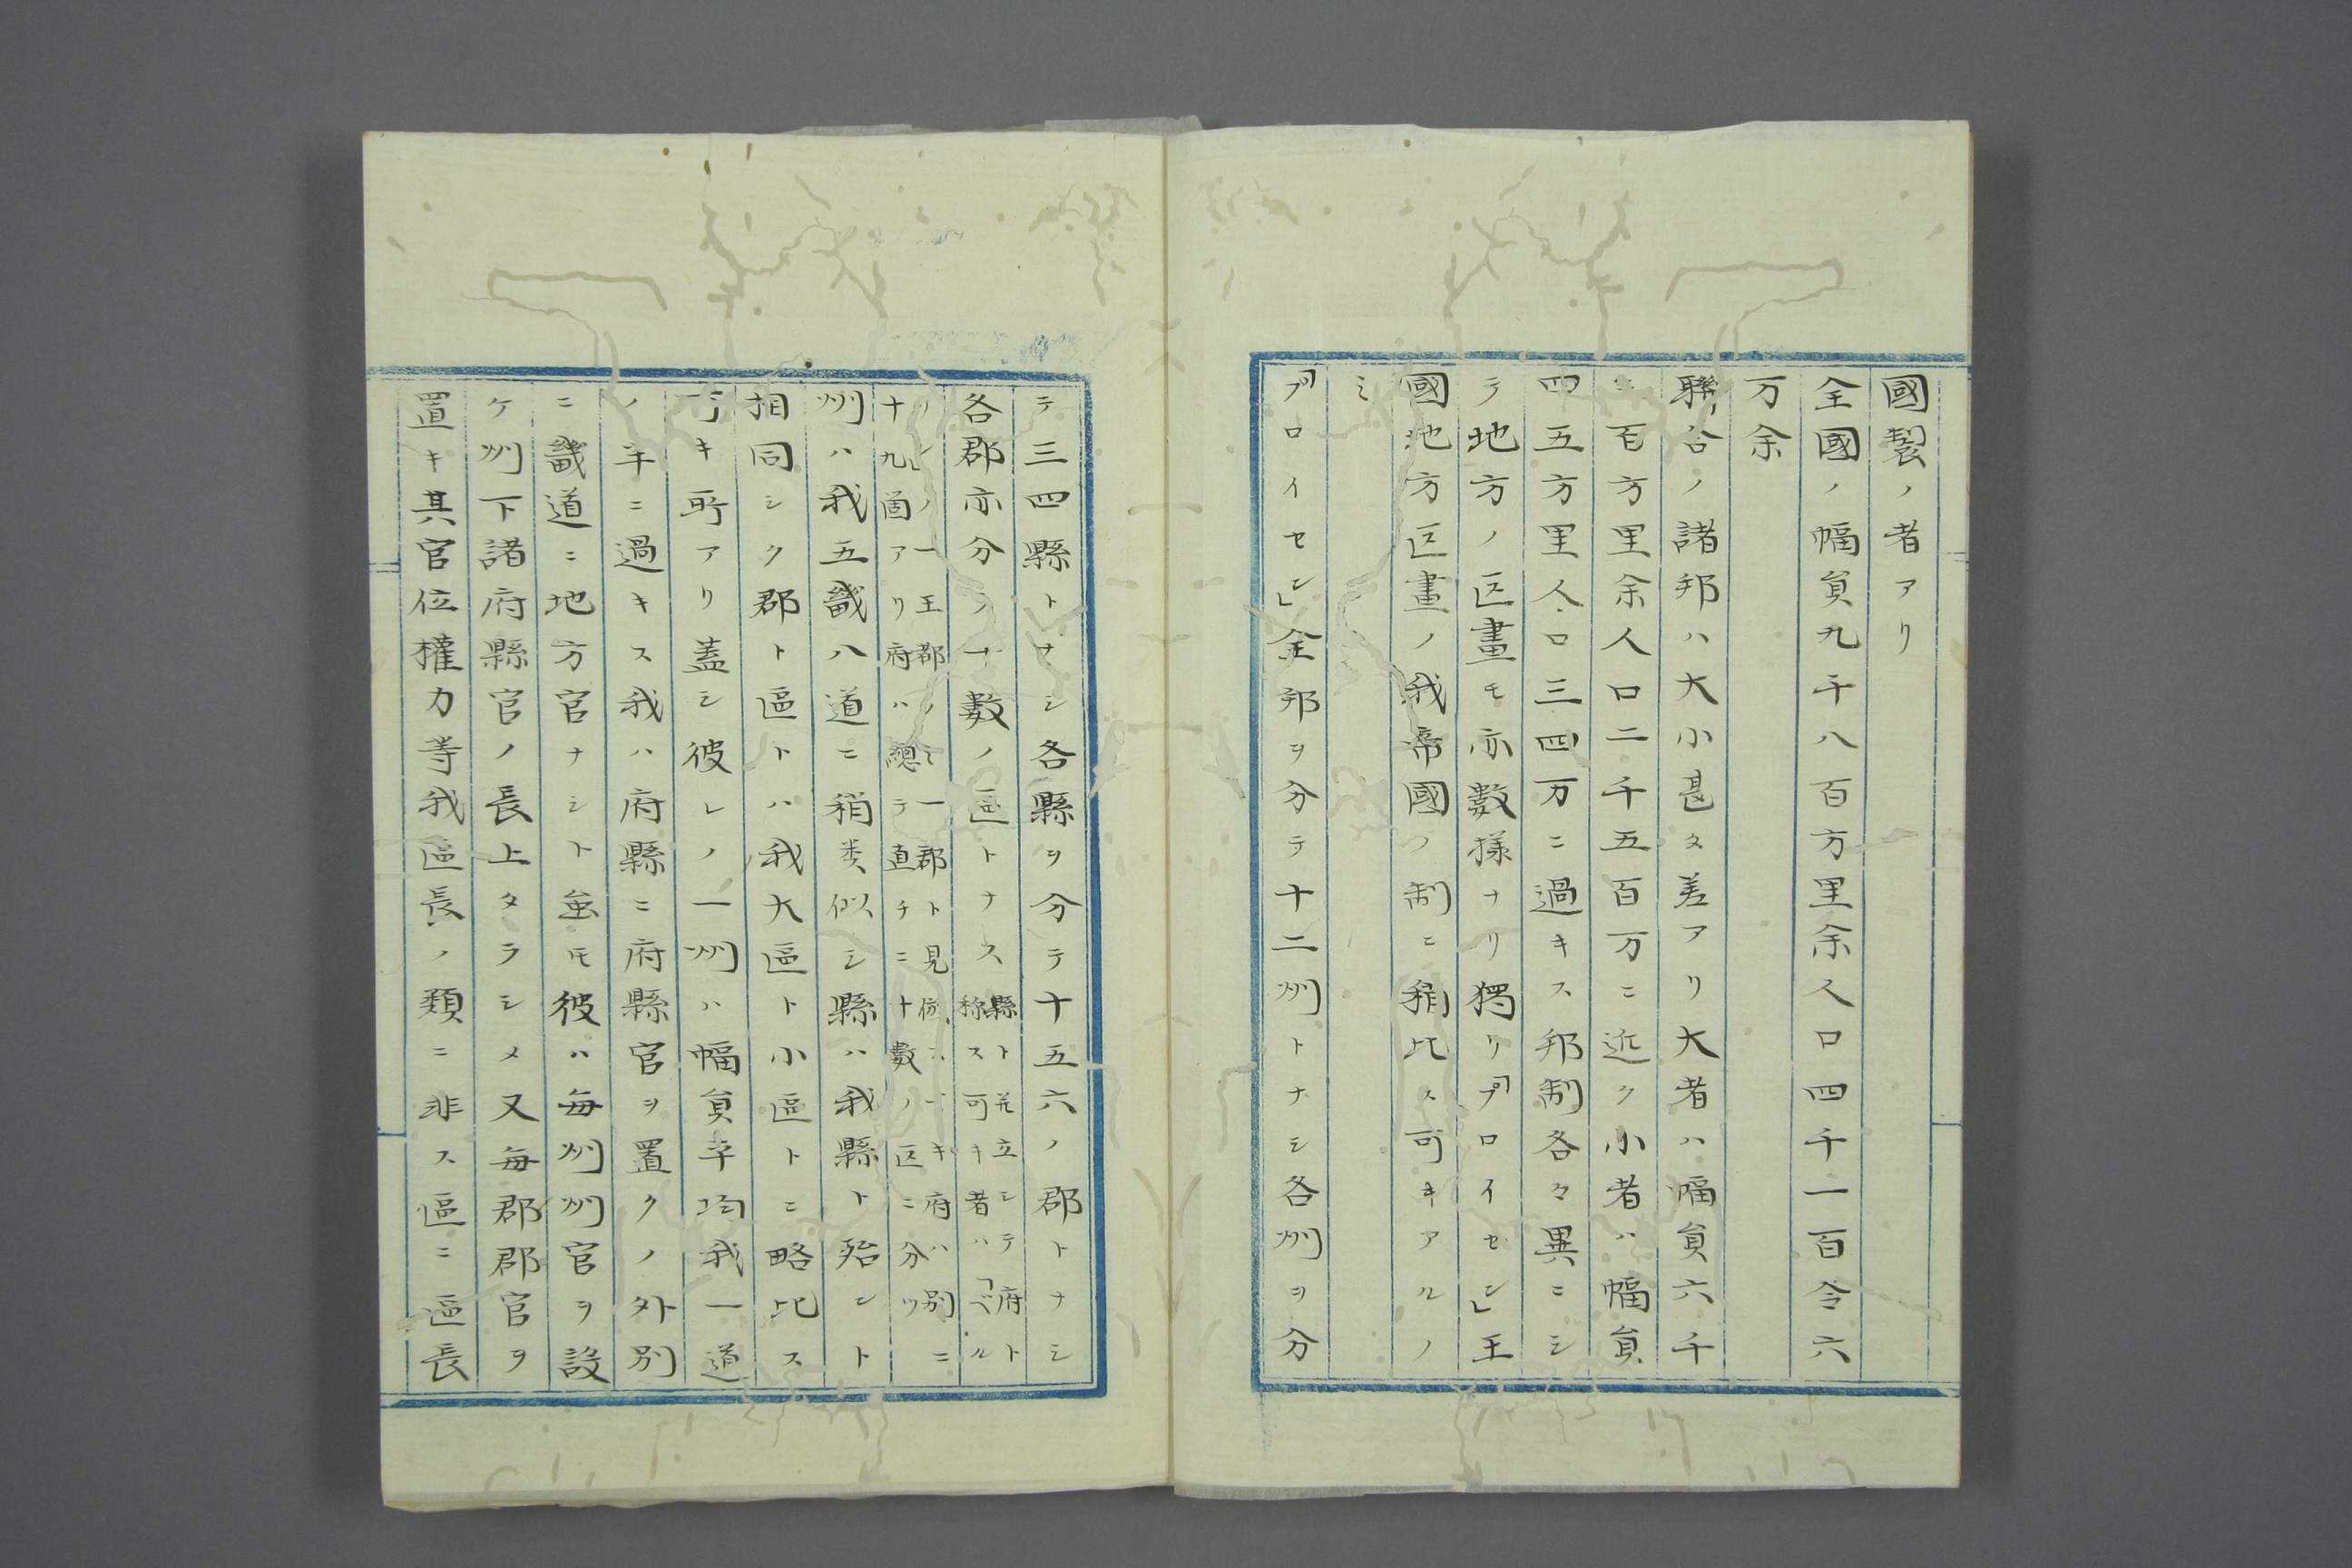 國製ノ者アリ
全國ノ幅員九千八百方里余人口四千一百令六
万余
聯合ノ諸邦ハ大小甚タ差アリ大者ハ幅員六千
三百方里余人口二千五百万ニ近ク小者ハ幅員
四五方里人口三四万ニ過キス邦制各々異ニシ
テ地方ノ区畫モ亦數様ナリ獨リ「プロイセン」王
國地方区畫ノ我帝國ノ制ニ稍比ス可キアルノ
ミ
「プロイセン」全邦ヲ分テ十二州トナシ各州ヲ分
テ三四縣トナシ各縣ヲ分テ十五六ノ郡トナシ
各郡亦分ノ十數ノ區トナス
縣ト並立シテ府ト
称ス可キ者ハ「ベル
リンノ一王郡ノミ一郡ト見做スヘキ府ハ別ニ
十九箇アリ府ハ總テ直チニ十數ノ区ニ分ツ
州ハ我五畿八道ニ稍类似シ縣ハ我縣ト殆ント
相同シク郡ト區トハ我大區ト小區トニ略比ス
可キ所アリ蓋シ彼レノ一州ハ幅員平均我一道
ノ半ニ過キス我ハ府縣ニ府縣官ヲ置クノ外別
ニ畿道ニ地方官ナシト虽モ彼ハ毎州州官ヲ設
ケ州下諸府縣官ノ長上タラシメ又毎郡郡官ヲ
置キ其官位權力等我區長ノ類ニ非ス區ニ區長